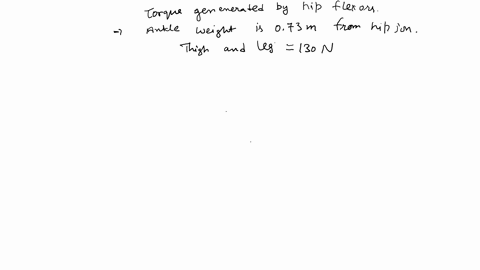 Torque genenerated by hip flexors.
→ Ankle weight is 0.73 m from hip join.
Thigh and leg = 130 N